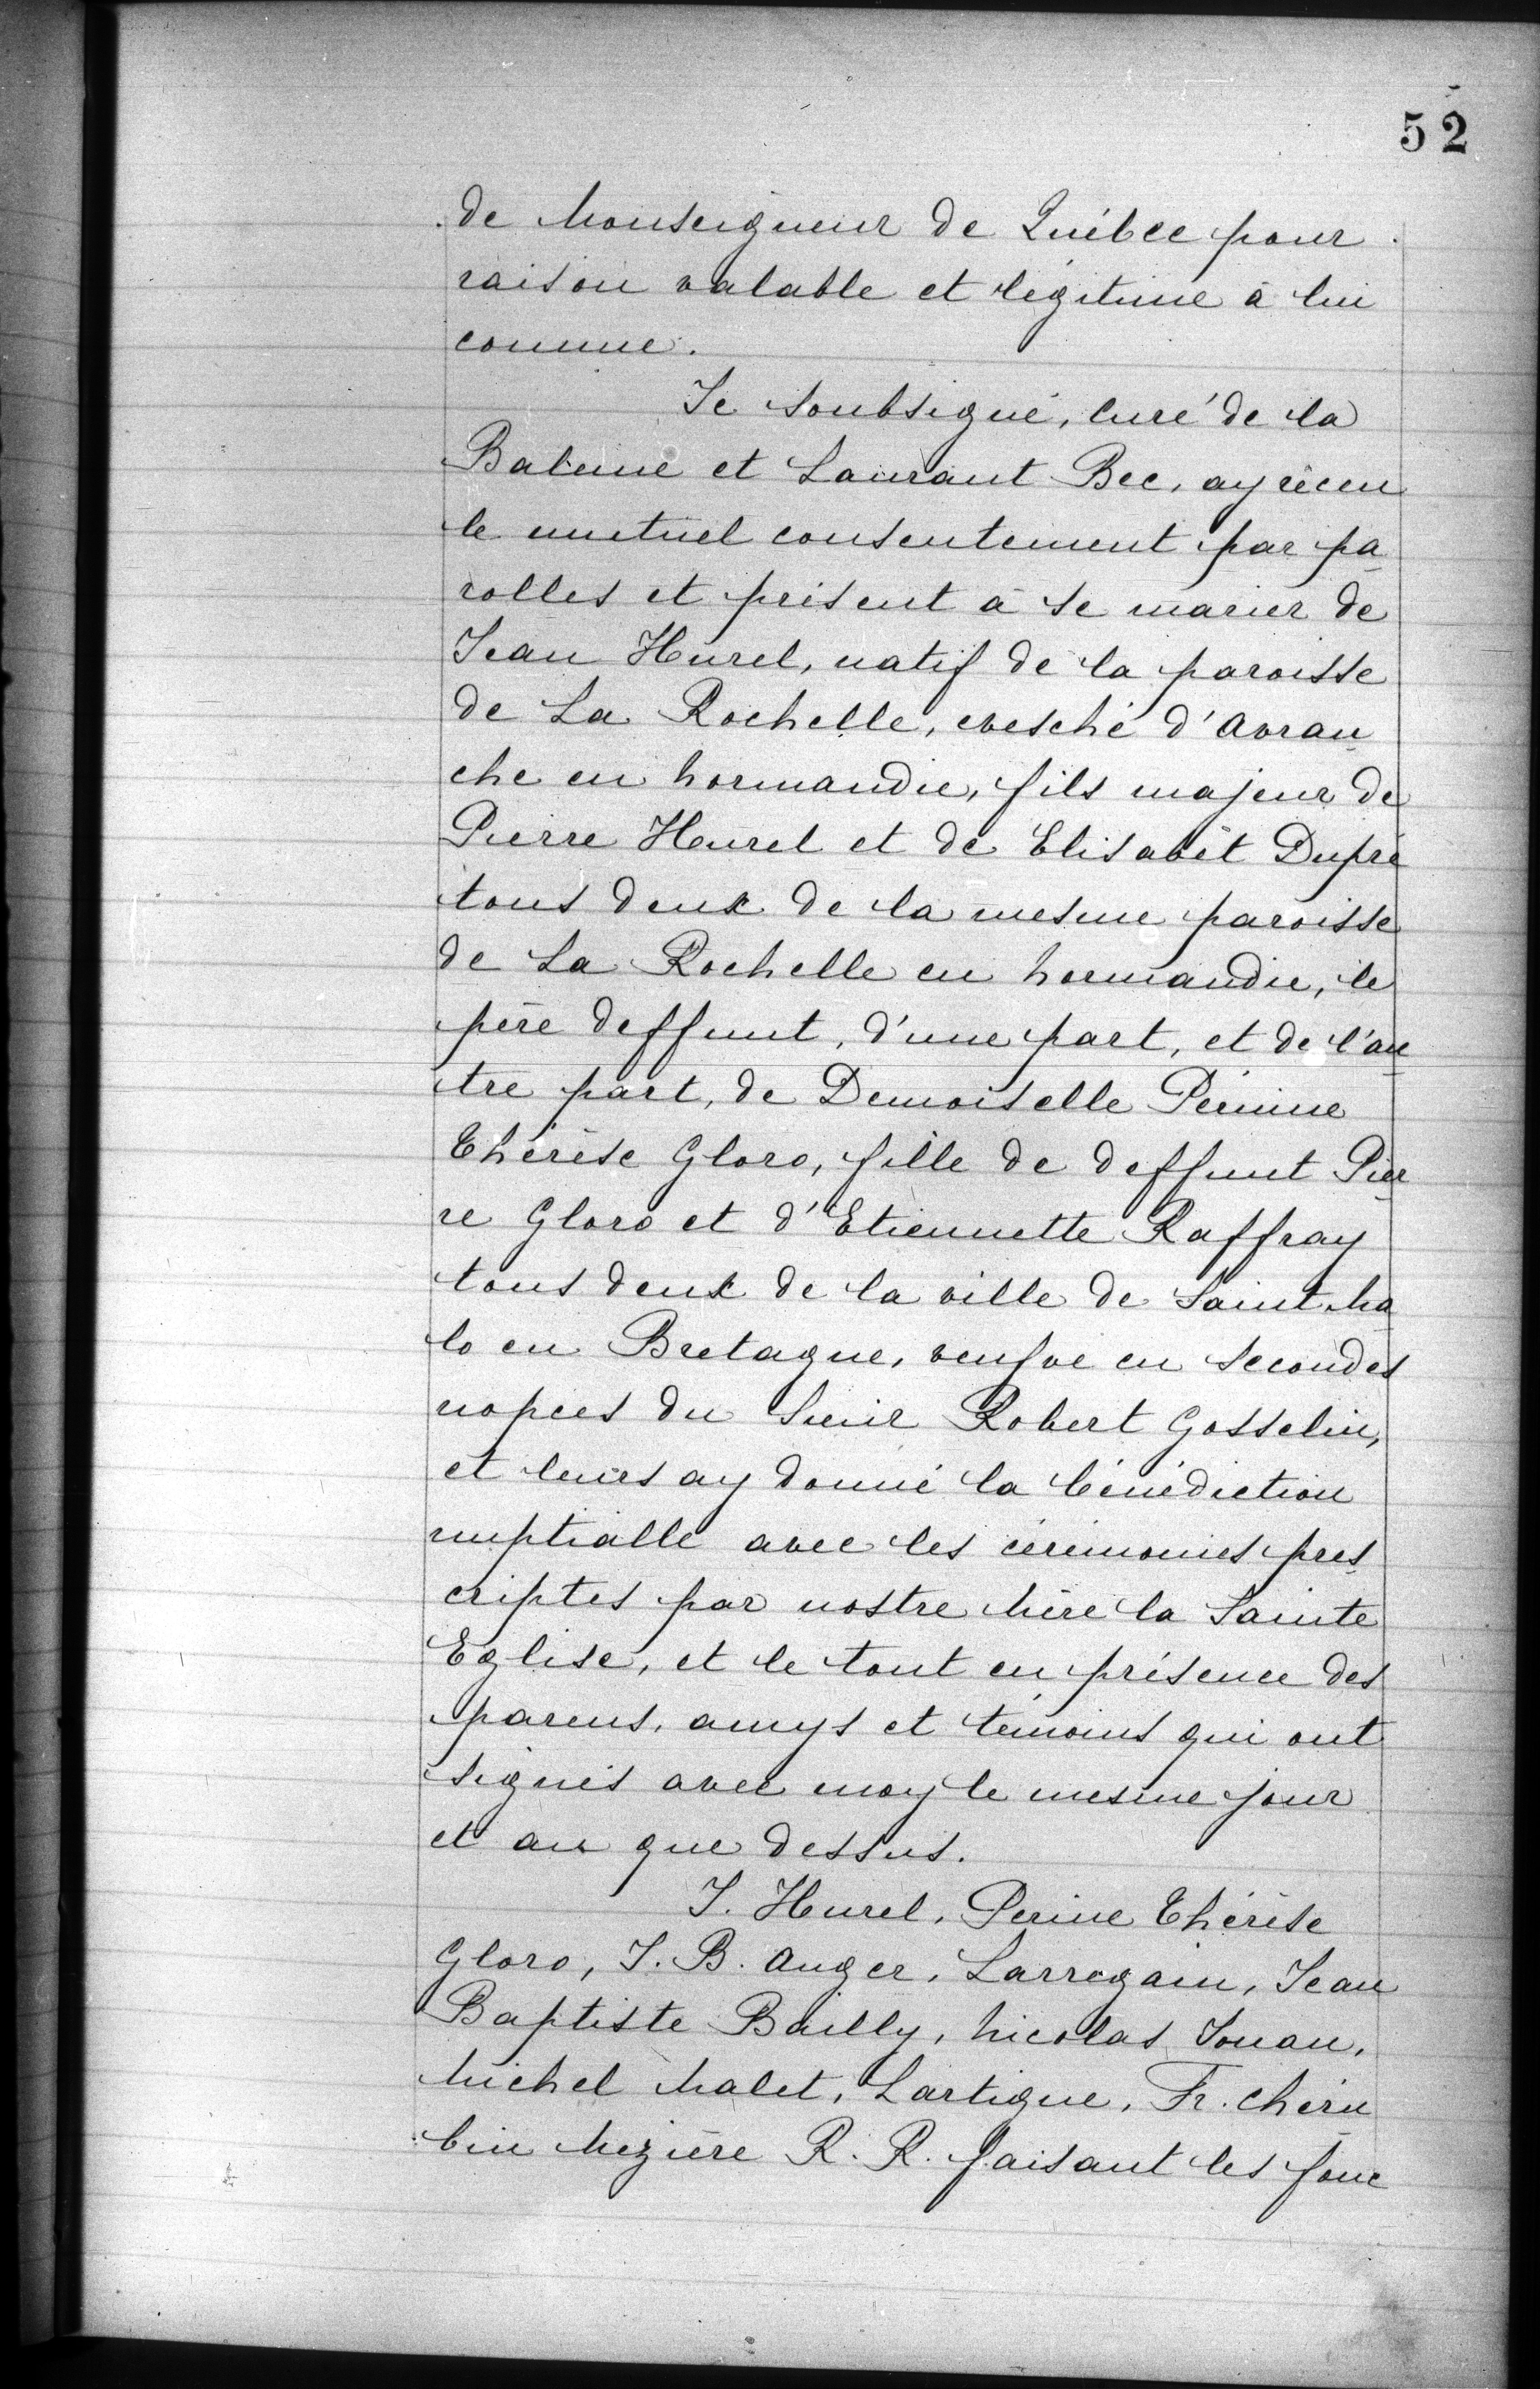 52
de Monseigneur de Québec pour
raison valable et légitime à lui
connue.
Je soubsigné, curé de la
Baleine et Laurant Bec, ay receu
le mutuel consentement par pa
rolles et présent à se marier de
Jean Hurel, natif de la paroisse
de La Rochelle, evesché d'Avran
che en Normandie, fils majeur de
Pierre Hurel et de Elisabèt Dupré
tous deux de la mesme paroisse
de La Rochelle en Normandie, le
père deffunt, d'une part, et de l'au
tre part, de Demoiselle Périnne
Thérèse Gloro, fille de deffunt Pier
re Gloro et d'Etiennette Raffray
tous deux de la ville de Saint Ma
lo en Bretagne, veufve en secondes
nopces du Sieur Robert Gosselin,
et leurs ay donné la bénédiction
nuptialle avec les cérémonies pres
criptes par nostre Mère la Sainte
Eglise, et le tout en présence des
parens, amys et témoins qui ont
signés avec moy le mesme jour
et an que dessus.
J. Hurel, Perine Thérèse
Gloro, J. B. Auger, Larregain, Jean
Baptiste Bailly, Nicolas Jouan,
Michel Malet, Lartigue, Fr. Chéru
bin Mézière R. R. faisant les fonc